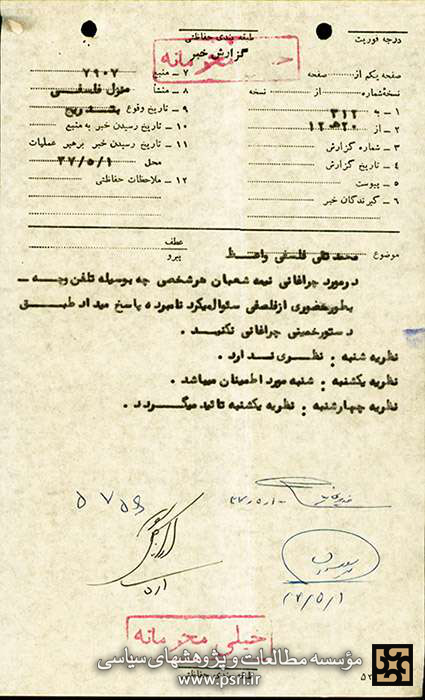 طبقه بندی حفاظتی
درجه فوریت
گزارش خبر
خیلی محرمانه
صفحه یکم از صفحه
نسخه شماره از نسخه
۱ – به ۳۱۲
۲ – از ۲۰ هـ ۱۲
۳ – شماره گزارش
۴ – تاریخ گزارش
۵ – پیوست
۶ – گیرندگان خبر
۷ – منبع ۷۹۰۷
۸ – منشأ منزل فلسفی
۹ – تاریخ وقوع بتدریج
۱۰ – تاریخ رسیدن خبر به منبع
۱۱ – تاریخ رسیدن خبر برهبر عملیات
محل ۳۷/۵/۱
۱۲ – ملاحظات حفاظتی
موضوع محمد تقی فلسفی واعظ
عطف
پیرو
درمورد چراغانی نیمه شعبان هرشخصی چه بوسیله تلفن وچه –
بطورحضوری ازفلسفی سئوال میکرد نامبرده پاسخ میداد طبق
دستورخمینی چراغانی نکنید .
نظریه شنبه : نظری ندارد .
نظریه یکشنبه : شنبه مورد اطمینان میباشد .
نظریه چهارشنبه : نظریه یکشنبه تائید میگردد .
خیلی محرمانه
مؤسسه مطالعات و پژوهشهای سیاسی
www.psri.ir